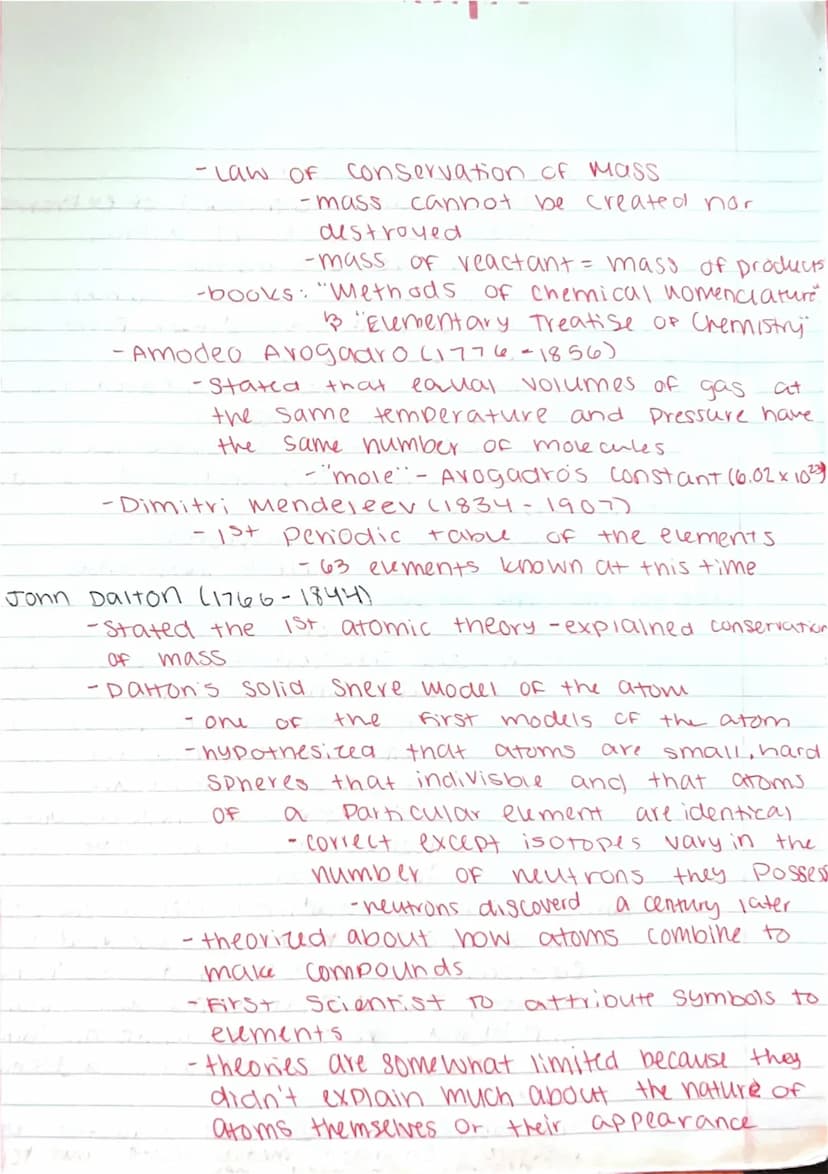 - Law of conservation of mass
- mass cannot be created nor
destroyed
- mass of reactant = mass of products
- books: "Methods of chemical nomenclature"
"Elementary Treatise of Chemistry"
- Amodeo Avogadro (1776 - 1856)
- stated that equal volumes of gas at
the same temperature and pressure have
the same number of molecules
- "mole" - Avogadro's constant (6.02 x 10²³)
- Dimitri Mendeleev (1834 - 1907)
- 1st periodic table of the elements
- 63 elements known at this time
John Dalton (1766 - 1844)
- stated the 1st atomic theory - explained conservation
of mass
- Dalton's solid shere model of the atom
- one of the first models of the atom
- hypothesized that atoms are small, hard
spheres that indivisble and that atoms
of a particular element are identical
- correct except isotopes vary in the
number of neutrons they possess
- neutrons discoverd a century later
- theorized about how atoms combine to
make compounds
- First scientist to attribute symbols to
elements
- theories are somewhat limited because they
didn't explain much about the nature of
atoms themselves or their appearance